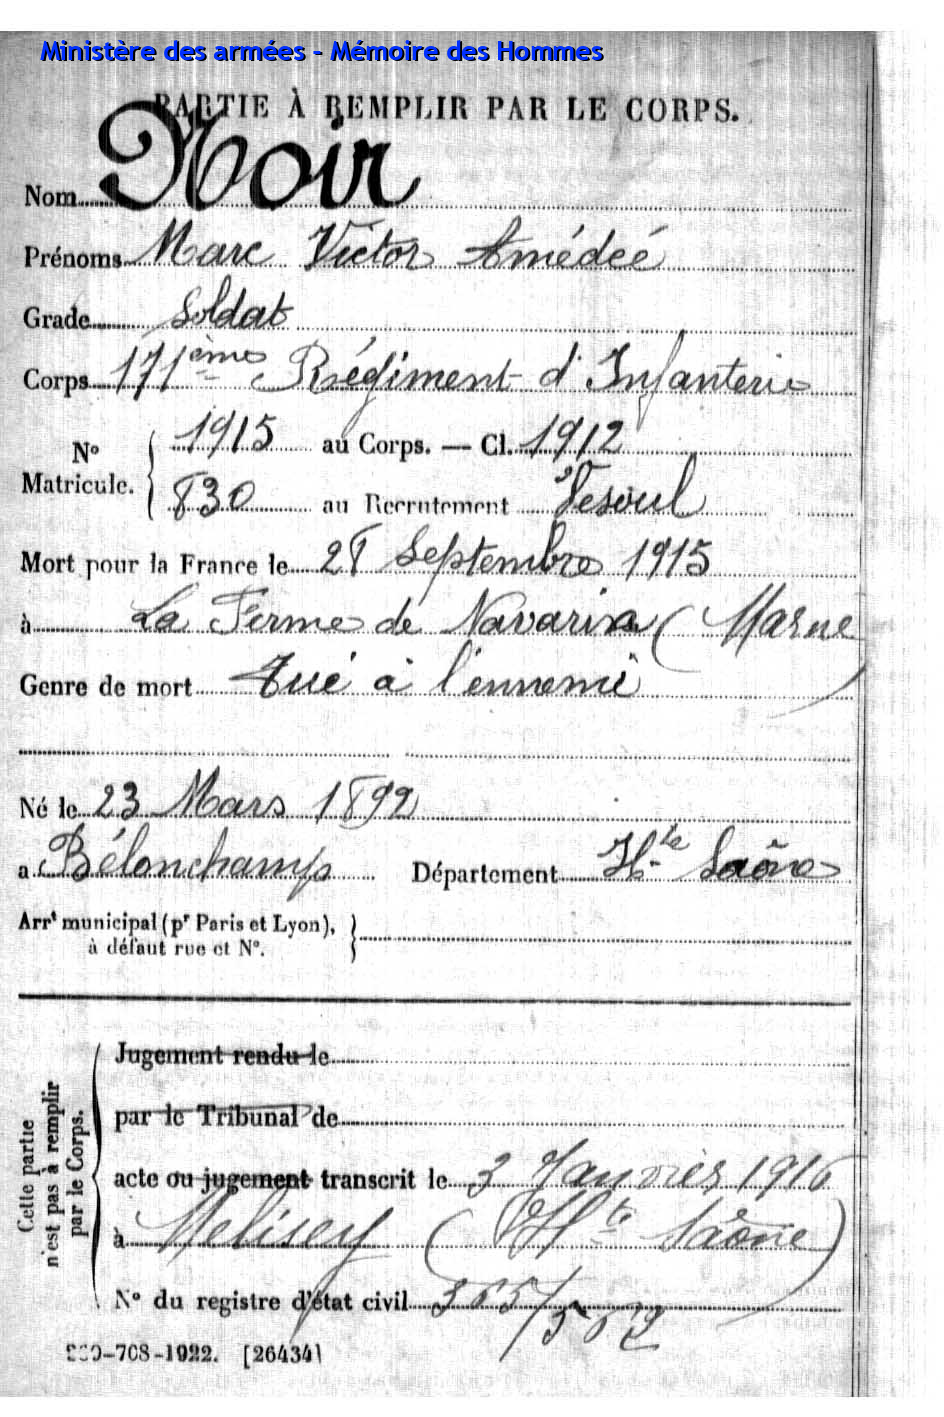 Ministère des armées - Mémoire des Hommes
PARTIE À REMPLIR PAR LE CORPS.
Nom Noir
Prénoms Marc Victor Amédéé
Grade Soldat
Corps 171ème Régiment d'Infanterie
N° Matricule. { 1915 au Corps. — Cl. 1912
830 au Recrutement Vesoul
Mort pour la France le 28 Septembre 1915
à La Ferme de Navarin (Marne)
Genre de mort Tué à l'ennemi
Né le 23 Mars 1892
a Bélonchamp Département Hte Saône
Arrt municipal (pr Paris et Lyon), }
à défaut rue et N°.
Cette partie n'est pas à remplir par le Corps.
Jugement rendu le
par le Tribunal de
acte ou jugement transcrit le 3 Janvier 1916
à Melisey (Hte Saône)
N° du registre d'état civil 365/562
-708-1922. [26434]